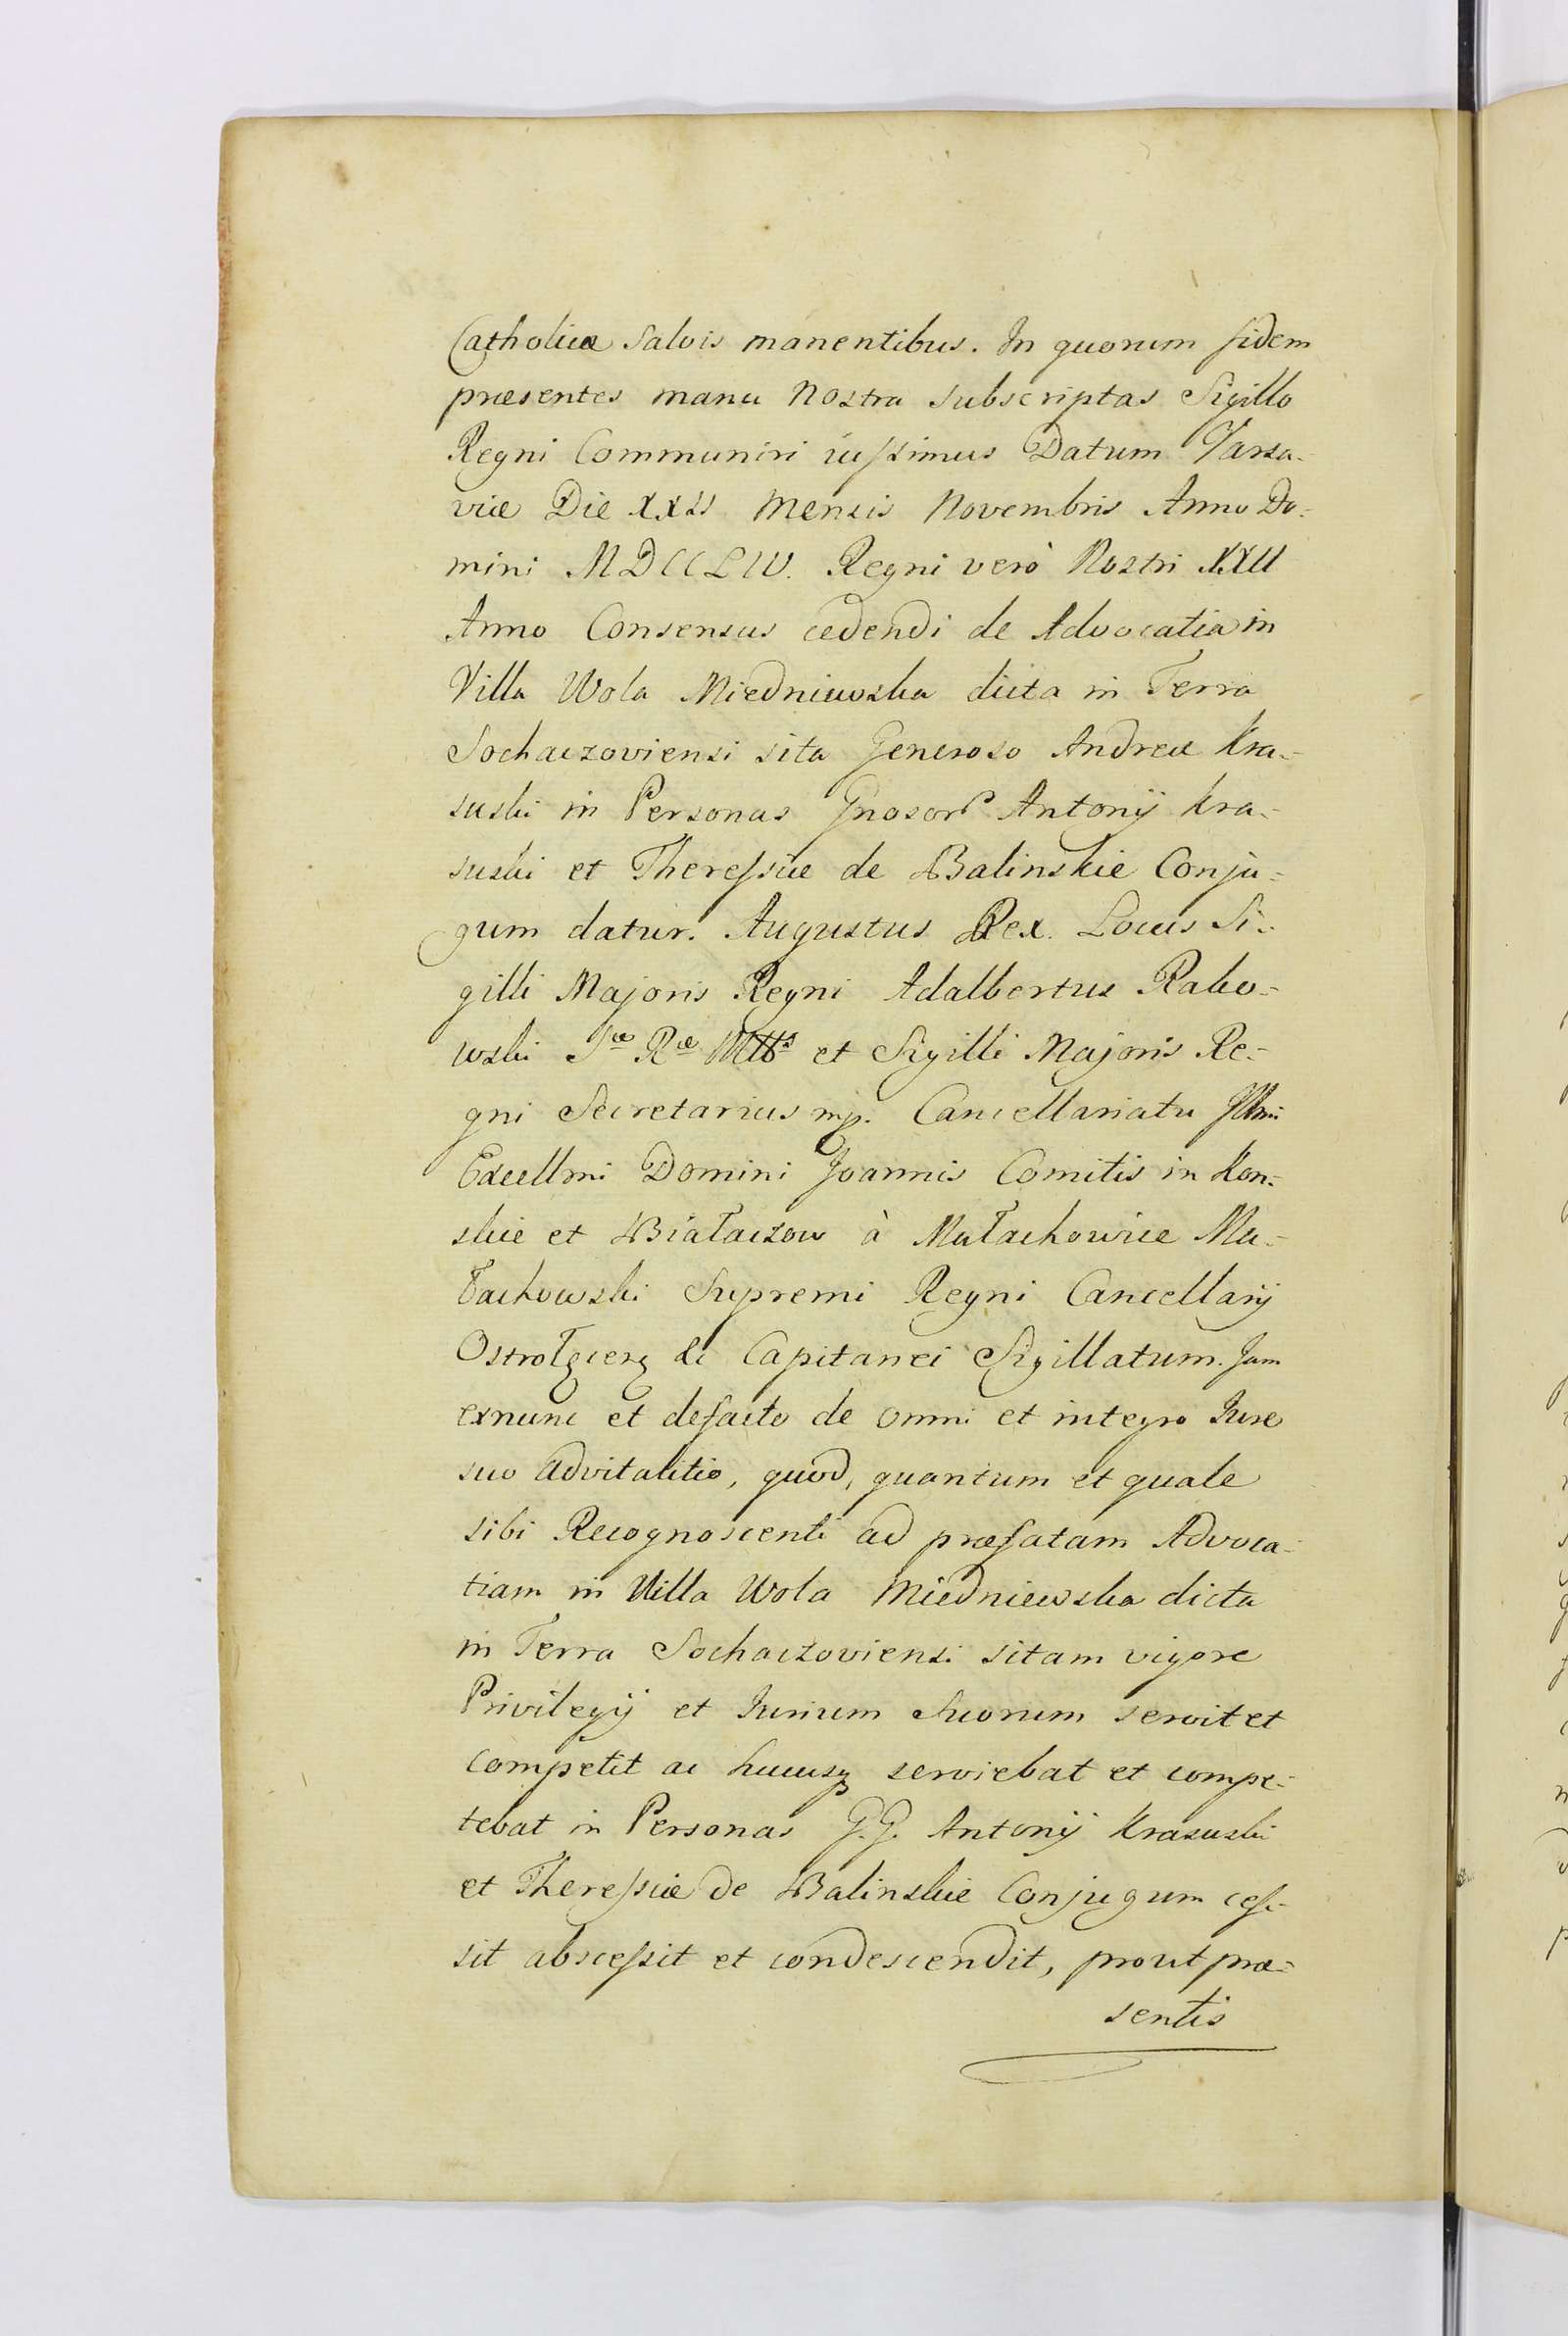 Catholicæ salvis manentibus. In quorum fidem
præsentes manu Nostra subscriptas Sigillo
Regni Communiri iussimus Datum Varsa-
viæ Die Mensis Novembris Anno Do-
mini MDCCLIV. Regni verò Nostri XXII
Anno Consensus cedendi de Advocatia in
Villa Wola Miedniewska dicta in Terra
Sochaczoviensi sita Generoso Andreæ Kra-
suski in Personas Gnosor Antonij Kra-
suski et Theressiæ de Balinskie Conju-
gum datur. Augustus Rex. Locus Si-
gilli Majoris Regni Adalbertus Rako-
wski Sæ Ræ Mttis et Sigilli Majoris Re-
gni Secretarius mp. Cancellariatu Illmi
Excellmi Domini Joannis Comitis in Kon-
skie et Białaczow à Małachowice Ma-
łachowski Supremi Regni Cancellarij
Capitanei Sigillatum. Jam
exnunc et defacto de omni et integro Iure
suo advitalitio, quod, quantum et quale
sibi Recognoscenti ad præfatam Advoca-
tiam in Villa Wola Miedniewska dicta
in Terra Sochaczoviensi sitam vigore
Privilegij et Iurium Suorum servit et
competit ac hucusq serviebat et compe-
tebat in Personas G.G. Antonij Krasuski
et Theressiæ de Balinskie Conjugum ces-
sit abscessit et condescendit, prout præ-
sentis